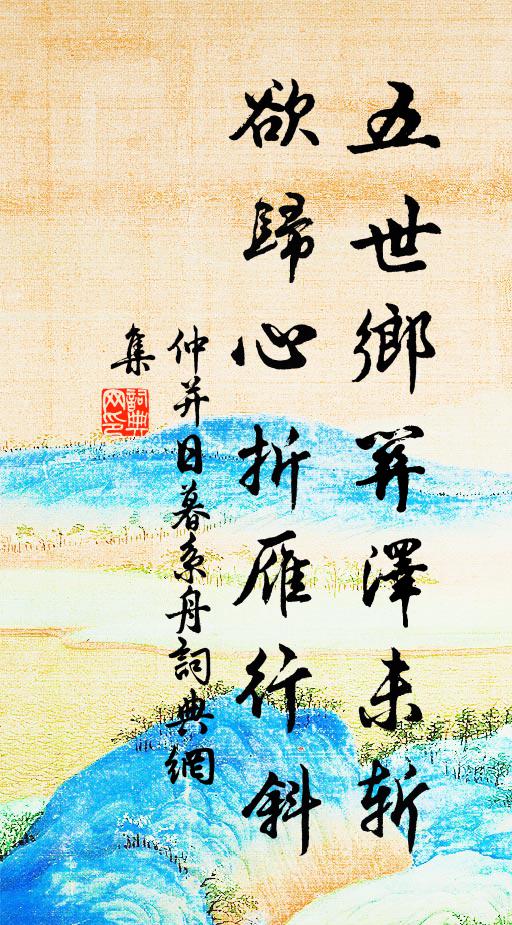 五世鄉關澤未斬
欲歸心折雁行斜
仲并日暮系舟詞典網
集
詞典
网印